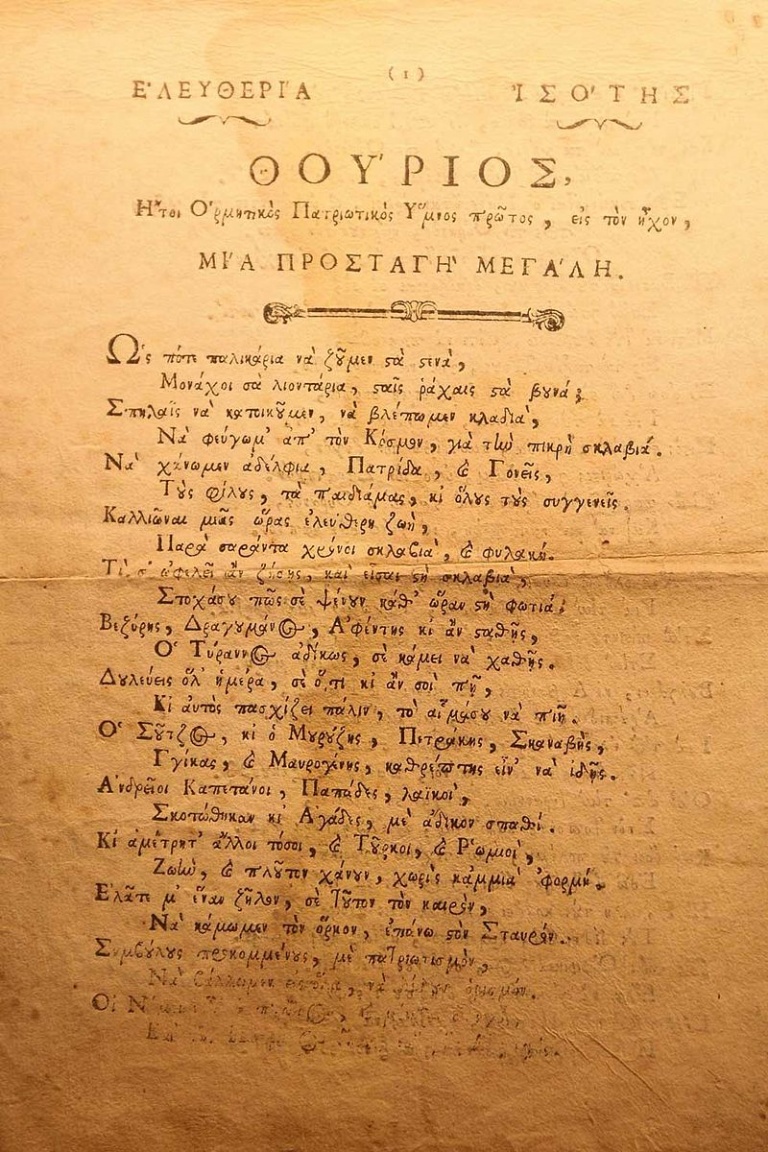 (1)
Ε'ΛΕΥΘΕΡΙ'Α
Ἰ ΣΟ'ΤΗΣ
ΘΟΥ'ΡΙΟΣ,
Η῎τοι Ο῾ρμητικὸς Πατριωτικὸς Υ῞μνος πρῶτος, εἰς τὸν ἦχον,
ΜΙ'Α ΠΡΟΣΤΑΓΗ' ΜΕΓΑ'ΛΗ.
Ω῾ς πότε παλικάρια νὰ ζȣ͂μεν ϛὰ ϛενὰ,
Μονάχοι σὰ λιοντάρια, ϛαῖς ῥάχαις ϛὰ βȣνά;
Σπηλαῖς νὰ κατοικȣ͂μεν, νὰ βλέπωμεν κλαδιὰ,
Νὰ φεύγωμ' ἀπ' τὸν Κόσμον, γιὰ τὴν πικρὴ σκλαβιά.
Νὰ χάνωμεν ἀδέλφια, Πατρίδα, ϗ Γονεῖς,
Τȣ̀ς φίλȣς, τὰ παιδιάμας, κι ὅλȣς τȣ̀ς συγγενεῖς.
Καλλιῶναι μιᾶς ὥρας ἐλεύθερη ζωὴ,
Παρὰ σαράντα χρόνοι σκλαβιὰ, ϗ φυλακή.
Τί σ' ὠφελεῖ ἂν ζήσῃς, καὶ εἶσαι ϛὴ σκλαβιὰ,
Στοχάσȣ πῶς σὲ ψένȣν καθ' ὥραν ϛὴ φωτιά;
Βεζύρης, Δραγȣμάνος, Α᾿φέντης κι ἂν ϛαθῇς,
Ο῾ Τύραννος ἀδίκως, σὲ κάμει νὰ χαθῇς.
Δȣλεύεις ὅλ' ἡμέρα, σὲ ὅ,τι κι ἂν σοὶ πῇ,
Κι αὐτὸς πασχίζει πάλιν, τὸ αἷμάσȣ νὰ πιῇ.
Ο῾ Σȣ͂τζος, κι ὁ Μȣρȣ́ζης, Πετράκης, Σκαναβῆς,
Γγίκας, ϗ Μαυρογένης, καθρέπτης εἶν' νὰ ἰδῇς.
Α᾿νδρεῖοι Καπετάνοι, Παπάδες, λαϊκοὶ,
Σκοτώθηκαν κι Α᾿γάδες, μὲ ἄδικον σπαθί.
Κι ἀμέτρητ' ἄλλοι τόσοι, ϗ Τȣ͂ρκοι, ϗ Ρ῾ωμιοὶ,
Ζωὴν, ϗ πλȣ͂τον χάνȣν, χωρὶς κἀμμιὰ 'φορμή.
Ε᾿λᾶτε μ' ἕναν ζῆλον, σὲ τȣ͂τον τὸν καιρὸν,
Νὰ κάμωμεν τὸν ὅρκον, ἐπάνω ϛὸν Σταυρόν.
Συμβȣ́λȣς προκομμένȣς, μὲ πατριωτισμὸν,
Νὰ βάλλωμεν εἰς ὅλα, νὰ
Οἱ